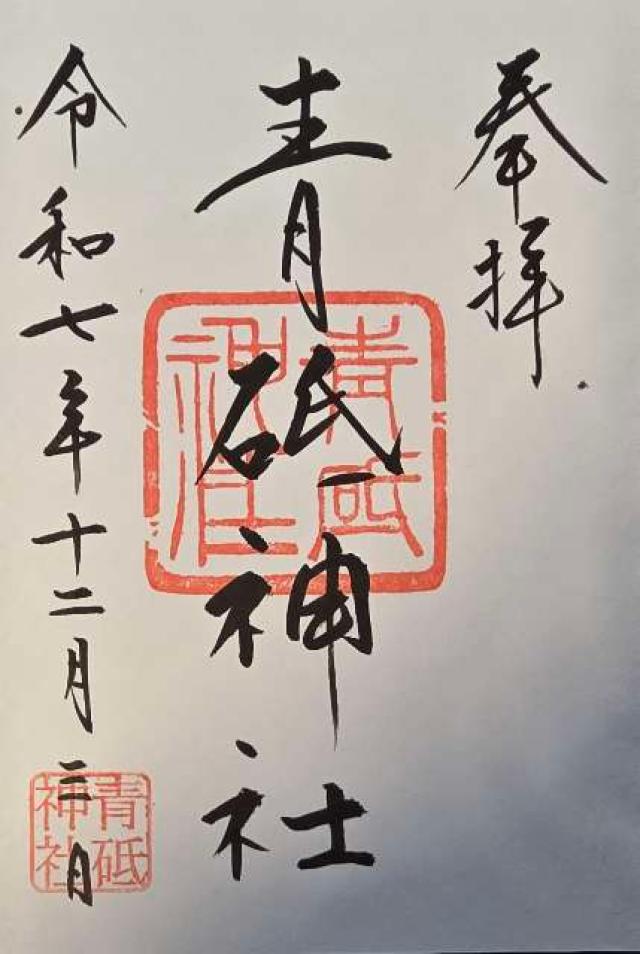 奉拝
青砥神社
青砥
神社
令和七年十二月三日
青砥
神社